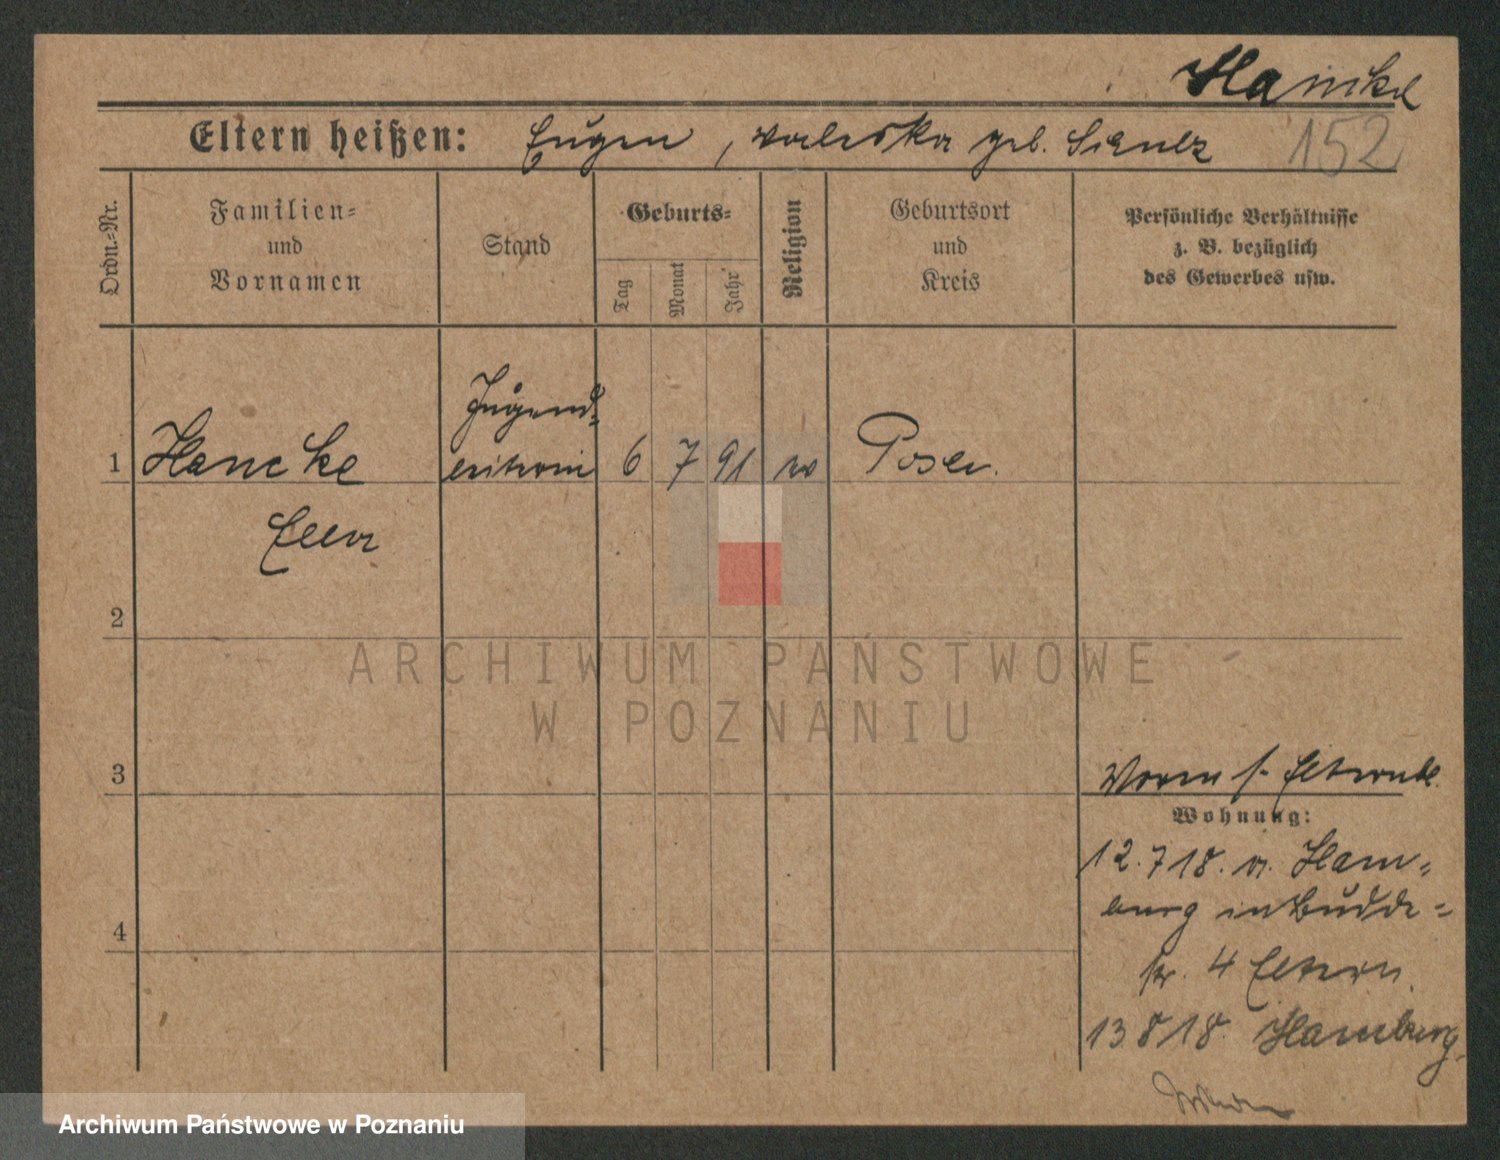 Hancke
Eltern heißen: Eugen, Valeska geb.
152
Ordn.-Nr.
Familien-
und
Vornamen
Stand
Geburts-
Tag
Monat
Jahr
Religion
Geburtsort
und
Kreis
Persönliche Verhältnisse
z. B. bezüglich
des Gewerbes usw.
Jugend-
1 Hancke 6 7 91 Posen.
Ella
2
3
Wohnung:
12.7 18. v. Ham-
burg in Budde-
str. 4 Eltern.
4
13 8 18. Hamburg.
ARCHIWUM PAŃSTWOWE
W POZNANIU
Archiwum Państwowe w Poznaniu